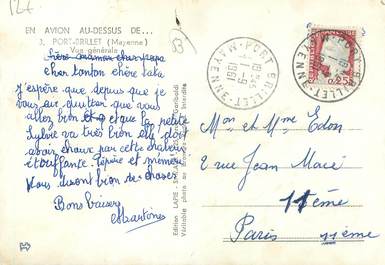 EN AVION AU-DESSUS DE...
3. PORT-BRILLET (Mayenne)
Vue générale
cher tonton chère tata
J'espère que depuis que je
vous ai quitter que vous
allez bien et que la petite
Sylvie va très bien elle doit
avoir chaux par cette chaleur
étouffante Pépère et mémère
Vous disent bien des choses
Bons baisers
Martine
Edition LAPIE
Véritable photo au
Interdite
PORT-BRILLET
MAYENNE
PORT-BRILLET
MAYENNE
0,25
Mon et Mme Edon
2 rue Jean Macé
11ème
Paris 11ème